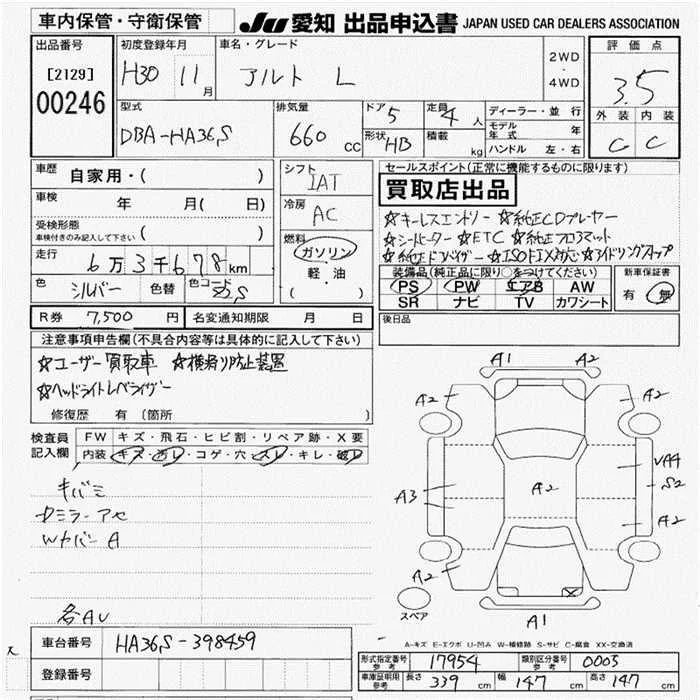 車内保管・守衛保管
JU 愛知 出品申込書 JAPAN USED CAR DEALERS ASSOCIATION
出品番号 [2129] 00246
初度登録年月 H30 11月
車名・グレード アルト L
2WD・4WD
評価点 3.5
外装 C 内装 C
型式 DBA-HA36S
排気量 660 cc
ドア 5 形状 HB
定員 4人 積載 kg
ディーラー・並行
モデル年式 年
ハンドル 左・右
車歴 自家用・( )
車検 年 月( 日)
受検形態
車検付きのみ記入して下さい ( )
走行 6万3千678km
色 シルバー 色替 色コード
シフト IAT
冷房 AC
燃料 ガソリン
軽・油
( )
セールスポイント(正常に機能するものに限ります)
買取店出品
☆キーレスエントリー ☆純正CDプレーヤー
☆シートヒーター ☆ETC ☆純正フロアマット
☆純正ドアバイザー ☆ISOFIX対応 ☆アイドリングストップ
装備品(純正品に限り○をつけてください)
PS PW エアB AW
SR ナビ TV カワシート
新車保証書
有 無
R券 7,500円 名変通知期限 月 日
後日品
注意事項申告欄(不具合内容等は具体的に記入して下さい)
☆ユーザー買取車 ☆横滑り防止装置
☆ヘッドライトレベライザー
修復歴 有 (箇所 )
検査員記入欄
FW キズ・飛石・ヒビ割・リペア跡・X要
内装 キズ・汚レ・コゲ・穴・スレ・キレ・破レ
キバミ
Dミラーアセ
Wカバー A
各AU
A1 A2
A2 A2
A3 A2 VA4
S2
A2
A2
A1
スペア
A-キズ E-エクボ U-凹み W-補修跡 S-サビ C-腐食 XX-交換済
車台番号 HA36S-398459
登録番号
形式指定番号 参考 17954 類別区分番号 参考 0003
車庫証明用 参考 長さ 339 cm 幅 147 cm 高さ 147 cm